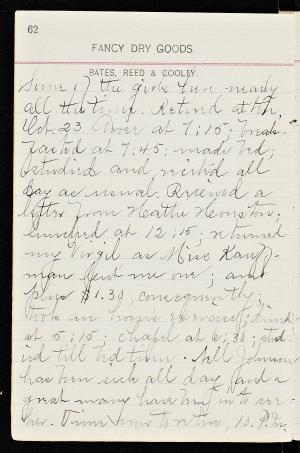 62
FANCY DRY GOODS.
BATES, REED & COOLEY.
Some of the girls here nearly
all the time. Retired at 10.
Oct. 23. Arose at 7:15; break-
fasted at 7:45; made bed;
studied and recited all
day as usual. Received a
letter from Heattie
lunched at 12:15; returned
my Virgil as Miss Kauff-
man lent me one; am
plus $1.30, consequently;
took an hours exercise; dined
at 5:15; chapel at 6:30; stud-
ied till bed time. Nell Johnson
has been sick all day and a
great many have been in to see
her. Time now to retire, 10. P.M.